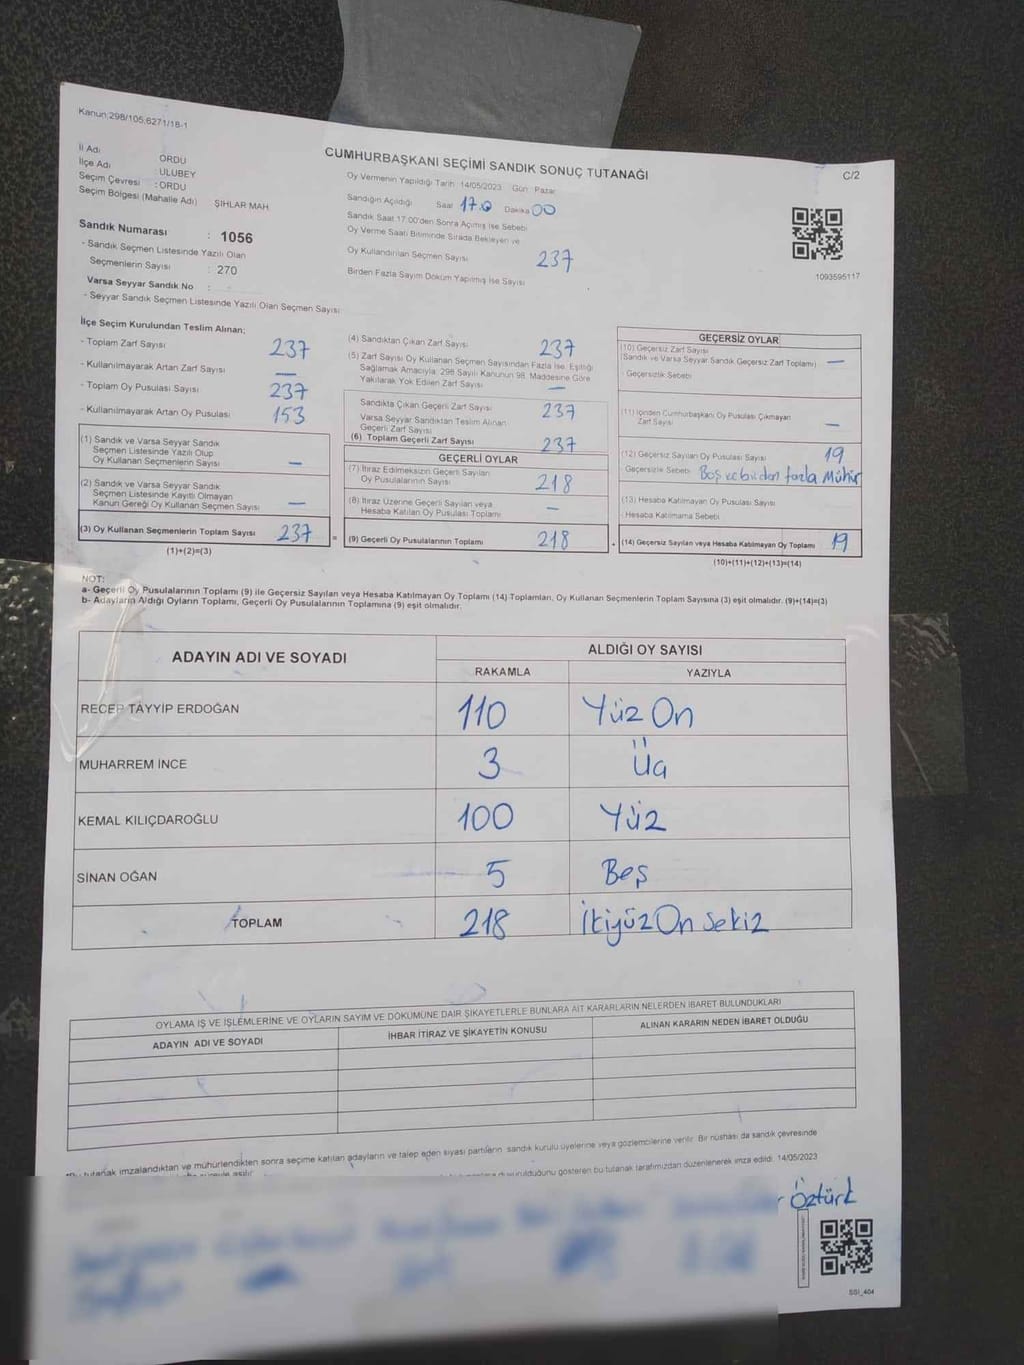 Kanun:298/105,6271/18-1
CUMHURBAŞKANI SEÇİMİ SANDIK SONUÇ TUTANAĞI
C/2
İl Adı ORDU
İlçe Adı :ULUBEY
Seçim Çevresi :ORDU
Seçim Bölgesi (Mahalle Adı) ŞIHLAR MAH
Sandık Numarası : 1056
- Sandık Seçmen Listesinde Yazılı Olan
Seçmenlerin Sayısı : 270
Varsa Seyyar Sandık No :
- Seyyar Sandık Seçmen Listesinde Yazılı Olan Seçmen Sayısı
Oy Vermenin Yapıldığı Tarih 14/05/2023 Gün Pazar
Sandığın Açıldığı Saat 17.0 Dakika 00
Sandık Saat 17:00'den Sonra Açılmış İse Sebebi
Oy Verme Saati Bitiminde Sırada Bekleyen ve
Oy Kullandırılan Seçmen Sayısı 237
Birden Fazla Sayım Döküm Yapılmış İse Sayısı
1093595117
İlçe Seçim Kurulundan Teslim Alınan;
- Toplam Zarf Sayısı 237
- Kullanılmayarak Artan Zarf Sayısı —
- Toplam Oy Pusulası Sayısı 237
- Kullanılmayarak Artan Oy Pusulası 153
(1) Sandık ve Varsa Seyyar Sandık
Seçmen Listesinde Yazılı Olup
Oy Kullanan Seçmenlerin Sayısı —
(2) Sandık ve Varsa Seyyar Sandık
Seçmen Listesinde Kayıtlı Olmayan
Kanun Gereği Oy Kullanan Seçmen Sayısı —
(3) Oy Kullanan Seçmenlerin Toplam Sayısı 237 =
(1)+(2)=(3)
(4) Sandıktan Çıkan Zarf Sayısı 237
(5) Zarf Sayısı Oy Kullanan Seçmen Sayısından Fazla İse, Eşitliği
Sağlamak Amacıyla; 298 Sayılı Kanunun 98. Maddesine Göre
Yakılarak Yok Edilen Zarf Sayısı —
Sandıkta Çıkan Geçerli Zarf Sayısı 237
Varsa Seyyar Sandıktan Teslim Alınan
Geçerli Zarf Sayısı
(6) Toplam Geçerli Zarf Sayısı 237
GEÇERLİ OYLAR
(7) İtiraz Edilmeksizin Geçerli Sayılan
Oy Pusulalarının Sayısı 218
(8) İtiraz Üzerine Geçerli Sayılan veya
Hesaba Katılan Oy Pusulası Toplamı —
(9) Geçerli Oy Pusulalarının Toplamı 218 +
GEÇERSİZ OYLAR
(10) Geçersiz Zarf Sayısı
(Sandık ve Varsa Seyyar Sandık Geçersiz Zarf Toplamı) —
Geçersizlik Sebebi
(11) İçinden Cumhurbaşkanı Oy Pusulası Çıkmayan
Zarf Sayısı —
(12) Geçersiz Sayılan Oy Pusulası Sayısı 19
Geçersizlik Sebebi Boş ve birden fazla Mühür
(13) Hesaba Katılmayan Oy Pusulası Sayısı
Hesaba Katılmama Sebebi
(14) Geçersiz Sayılan veya Hesaba Katılmayan Oy Toplamı 19
(10)+(11)+(12)+(13)=(14)
NOT:
a- Geçerli Oy Pusulalarının Toplamı (9) ile Geçersiz Sayılan veya Hesaba Katılmayan Oy Toplamı (14) Toplamları, Oy Kullanan Seçmenlerin Toplam Sayısına (3) eşit olmalıdır. (9)+(14)=(3)
b- Adayların Aldığı Oyların Toplamı, Geçerli Oy Pusulalarının Toplamına (9) eşit olmalıdır.
ADAYIN ADI VE SOYADI ALDIĞI OY SAYISI
RAKAMLA YAZIYLA
RECEP TAYYİP ERDOĞAN 110 Yüz On
MUHARREM İNCE 3 Üç
KEMAL KILIÇDAROĞLU 100 Yüz
SİNAN OĞAN 5 Beş
TOPLAM 218 İkiyüz On Sekiz
OYLAMA İŞ VE İŞLEMLERİNE VE OYLARIN SAYIM VE DÖKÜMÜNE DAİR ŞİKAYETLERLE BUNLARA AİT KARARLARIN NELERDEN İBARET BULUNDUKLARI
ADAYIN ADI VE SOYADI İHBAR İTİRAZ VE ŞİKAYETİN KONUSU ALINAN KARARIN NEDEN İBARET OLDUĞU
tutanak imzalandıktan ve mühürlendikten sonra seçime katılan adayların ve talep eden siyasi partilerin sandık kurulu üyelerine veya gözlemcilerine verilir. Bir nüshası da sandık çevresinde
duyurulduğunu gösteren bu tutanak tarafımızdan düzenlenerek imza edildi. 14/05/2023
Öztürk
SSI_404